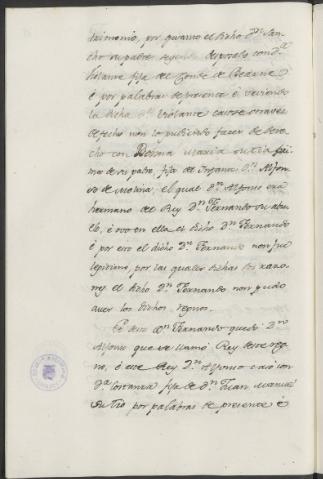 trimonio, por quanto el dicho Dn. San-
cho su padre seyendo desposado con Da.
Violante fija del Conde de Bearne
é por palabras de presente, é veviendo
la dicha Da. Violante casose otra vez
de fecho non lo pudiendo fazer de dere-
cho con Donna Maria su tia
de su padre, fija del Infante Dn. Alfon-
so de Molina; el qual Dn. Alfonso era
hermano del Rey Dn. Fernando su abu-
elo, é ovo en ella el dicho Dn. Fernando
é por eso el dicho Dn. Fernando non fue
legitimo, por las quales dichas tres razo-
nes el dicho Dn. Fernando non pudo
aver los dichos regnos.
De este Dn. Fernando quedó Dn.
Alfonso que se llamó Rey deste reg-
no, é este Rey Dn. Alfonso casó con
Da. Costanza fija de Dn. Juan Manuel
su tio por palabras de presente é